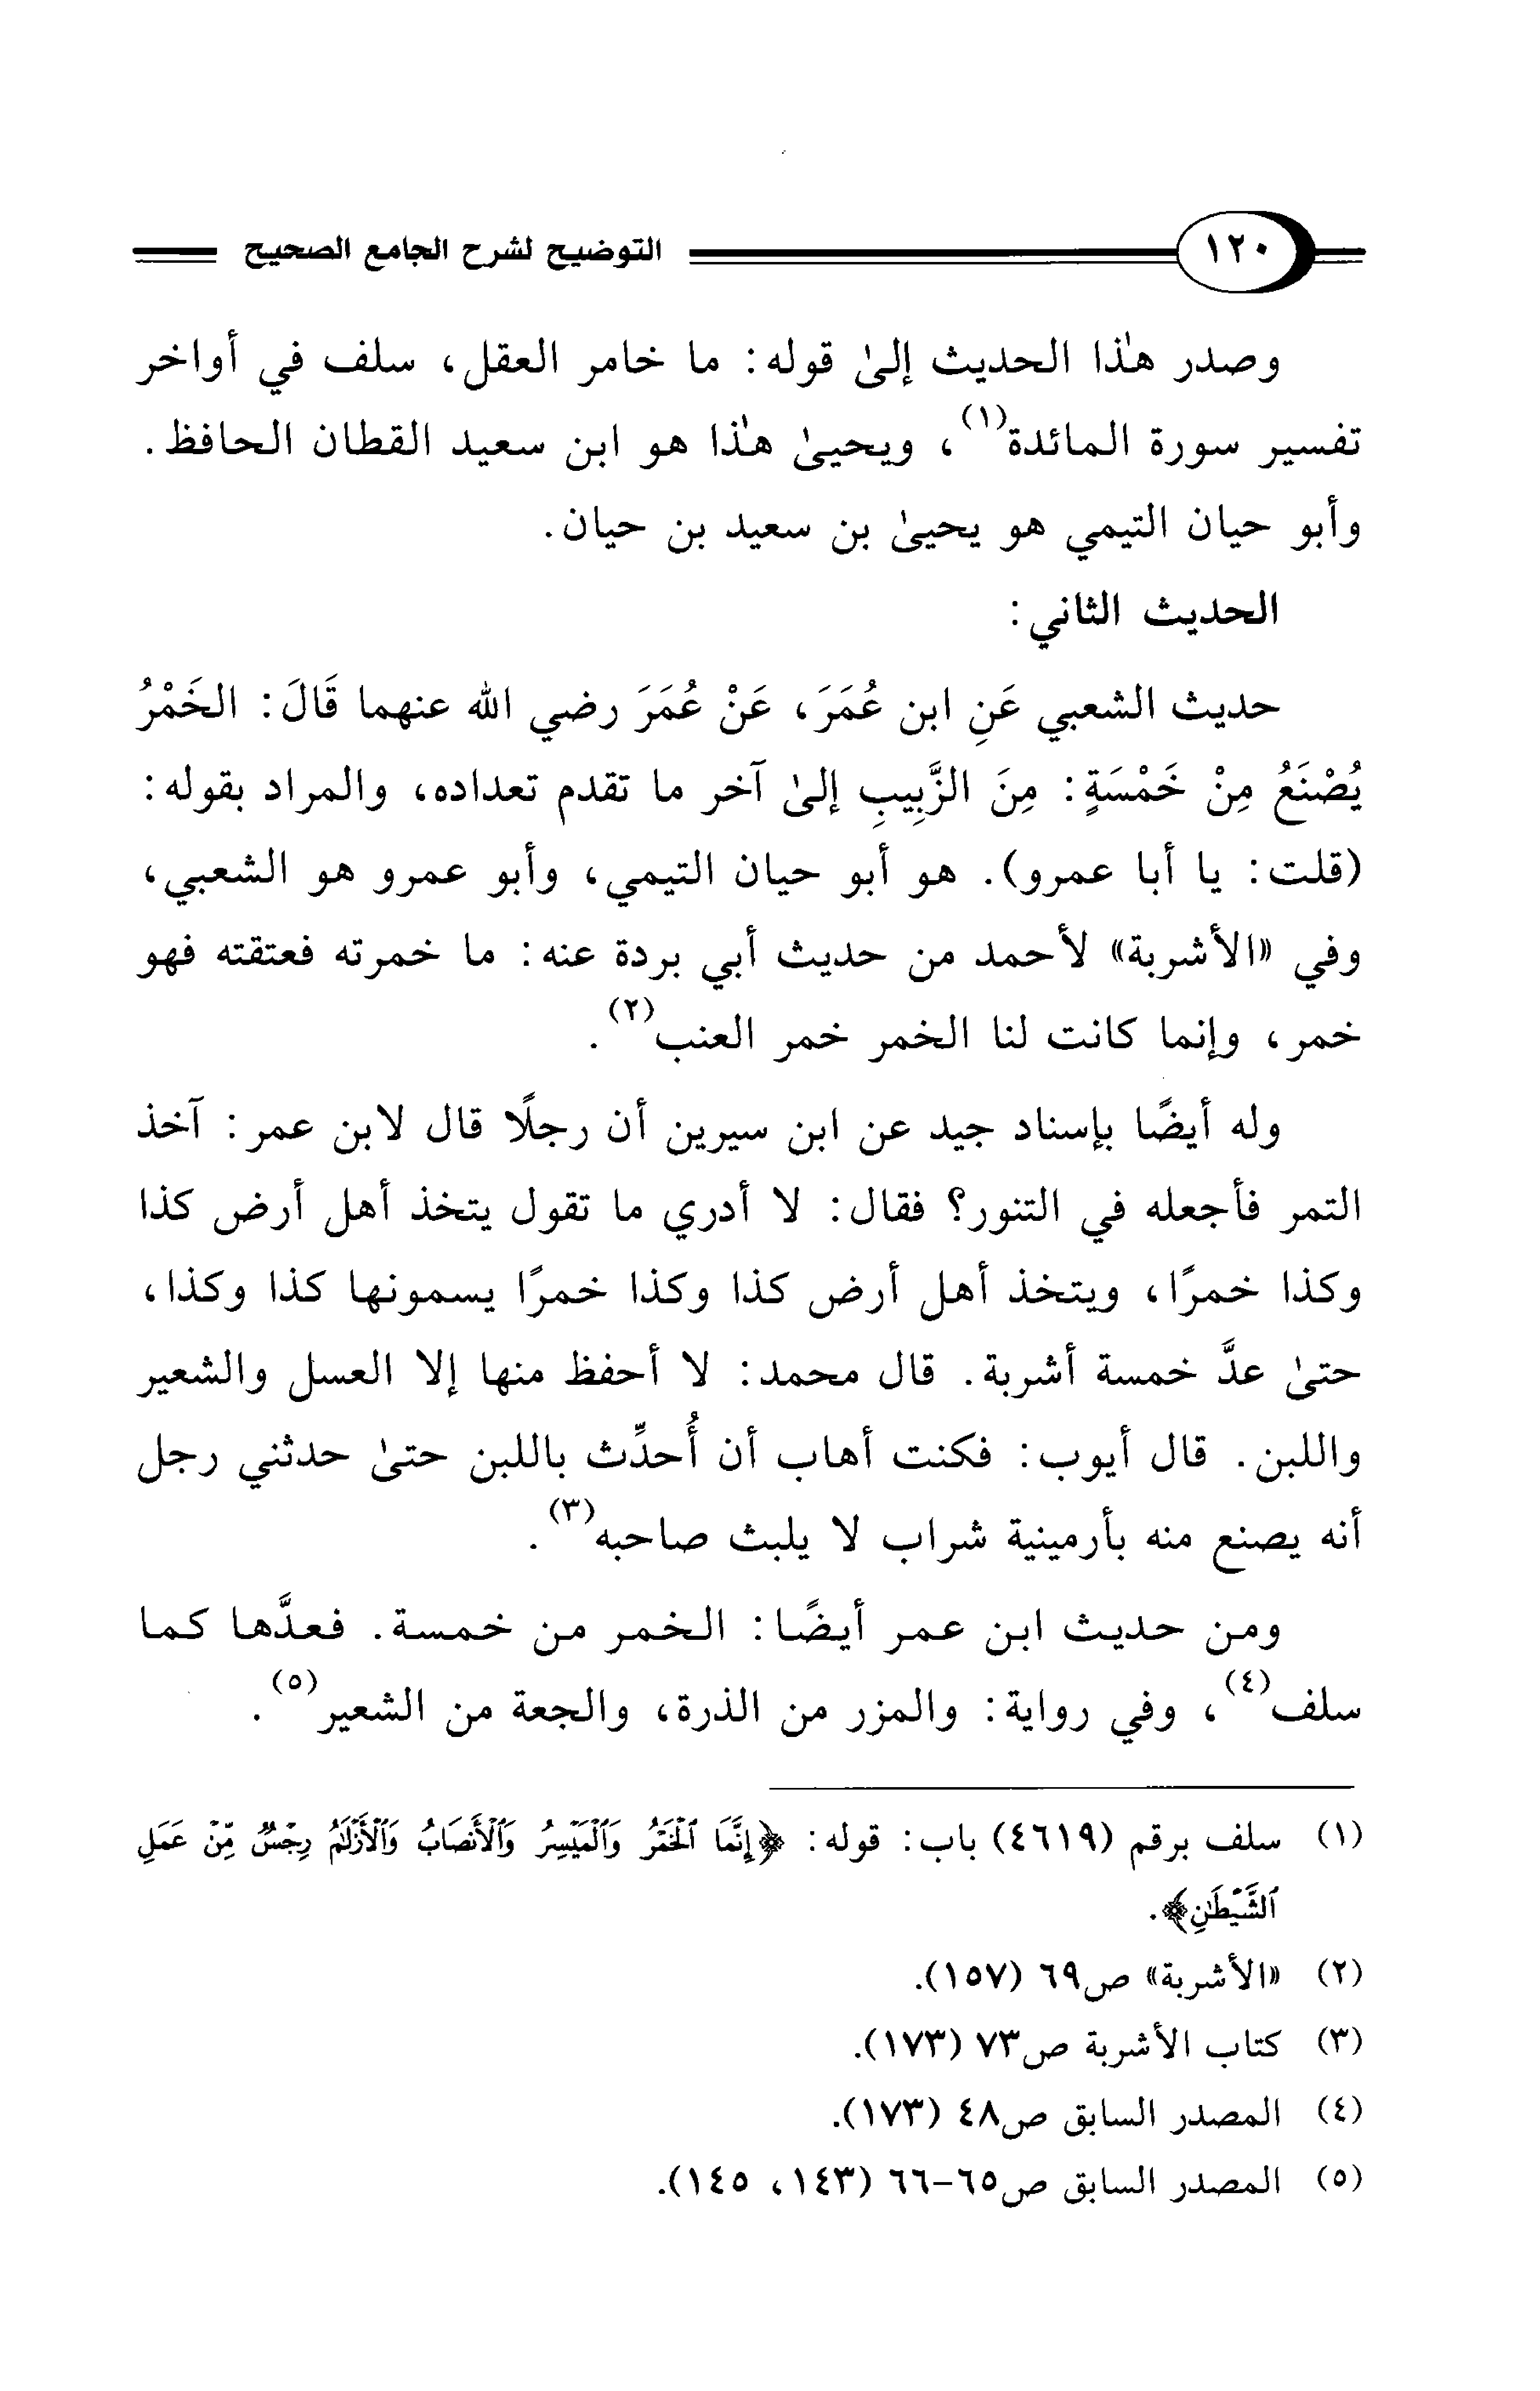 ١٢٠ التوضيح لشرح الجامع الصحيح
وصدر هذا الحديث إلىٰ قوله: ما خامر العقل، سلف في أواخر
تفسير سورة المائدة(١)، ويحيىٰ هذا هو ابن سعيد القطان الحافظ.
وأبو حيان التيمي هو يحيىٰ بن سعيد بن حيان.
الحديث الثاني:
حديث الشعبي عَنِ ابن عُمَرَ، عَنْ عُمَرَ رضي الله عنهما قَالَ: الخَمْرُ
يُصْنَعُ مِنْ خَمْسَةٍ: مِنَ الزَّبِيبِ إلىٰ آخر ما تقدم تعداده، والمراد بقوله:
(قلت: يا أبا عمرو). هو أبو حيان التيمي، وأبو عمرو هو الشعبي،
وفي «الأشربة» لأحمد من حديث أبي بردة عنه: ما خمرته فعتقته فهو
خمر، وإنما كانت لنا الخمر خمر العنب(٢).
وله أيضًا بإسناد جيد عن ابن سيرين أن رجلًا قال لابن عمر: آخذ
التمر فأجعله في التنور؟ فقال: لا أدري ما تقول يتخذ أهل أرض كذا
وكذا خمرًا، ويتخذ أهل أرض كذا وكذا خمرًا يسمونها كذا وكذا،
حتىٰ عدَّ خمسة أشربة. قال محمد: لا أحفظ منها إلا العسل والشعير
واللبن. قال أيوب: فكنت أهاب أن أُحدِّث باللبن حتىٰ حدثني رجل
أنه يصنع منه بأرمينية شراب لا يلبث صاحبه(٣).
ومن حديث ابن عمر أيضًا: الخمر من خمسة. فعدَّها كما
سلف(٤)، وفي رواية: والمزر من الذرة، والجعة من الشعير(٥).
(١) سلف برقم (٤٦١٩) باب: قوله: ﴿إِنَّمَا ٱلْخَمْرُ وَٱلْمَيْسِرُ وَٱلْأَنصَابُ وَٱلْأَزْلَٰمُ رِجْسٌ مِّنْ عَمَلِ
ٱلشَّيْطَٰنِ﴾.
(٢) «الأشربة» ص٦٩ (١٥٧).
(٣) كتاب الأشربة ص٧٣ (١٧٣).
(٤) المصدر السابق ص٤٨ (١٧٣).
(٥) المصدر السابق ص٦٥-٦٦ (١٤٣، ١٤٥).